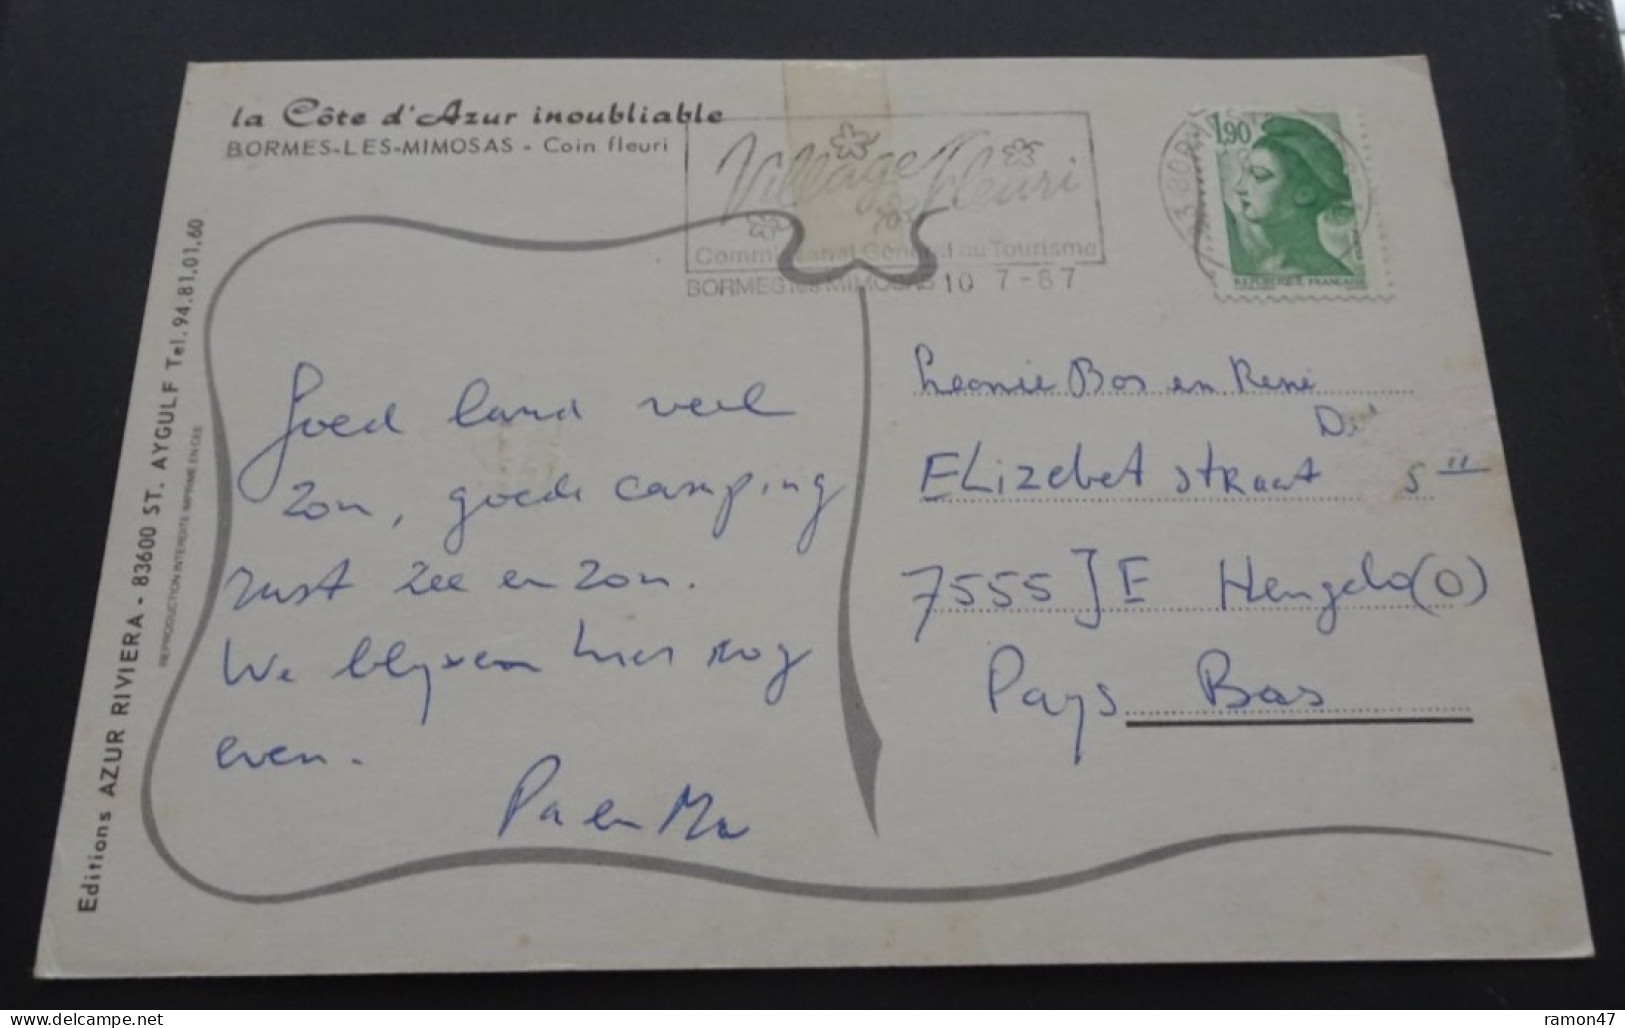 la Côte d'Azur inoubliable
BORMES-LES-MIMOSAS - Coin fleuri
Village Fleuri
Commissariat Général au Tourisme
BORMES les MIMOSAS 10 7-87
1,90
REPUBLIQUE FRANÇAISE
Editions AZUR RIVIERA - 83600 ST. AYGULF Tel. 94.81.01.60
REPRODUCTION INTERDITE IMPRIME EN CEE
Goed land veel
zon, goede camping
rust zee en zon.
We blijven hier nog
even.
Pa en Ma
Leonie Bos en René
D.
ELizebet straat 5 II
7555 JE Hengelo (O)
Pays Bas
ramon47